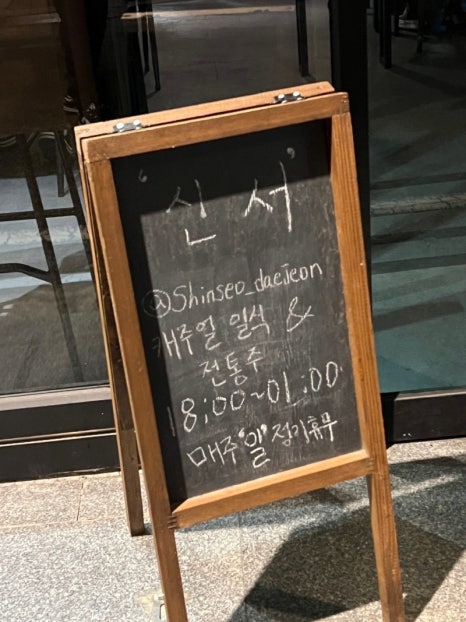 '신서'
@Shinseo_daejeon
캐주얼 일식 &
전통주
18:00~01:00
매주 "일" 정기휴무